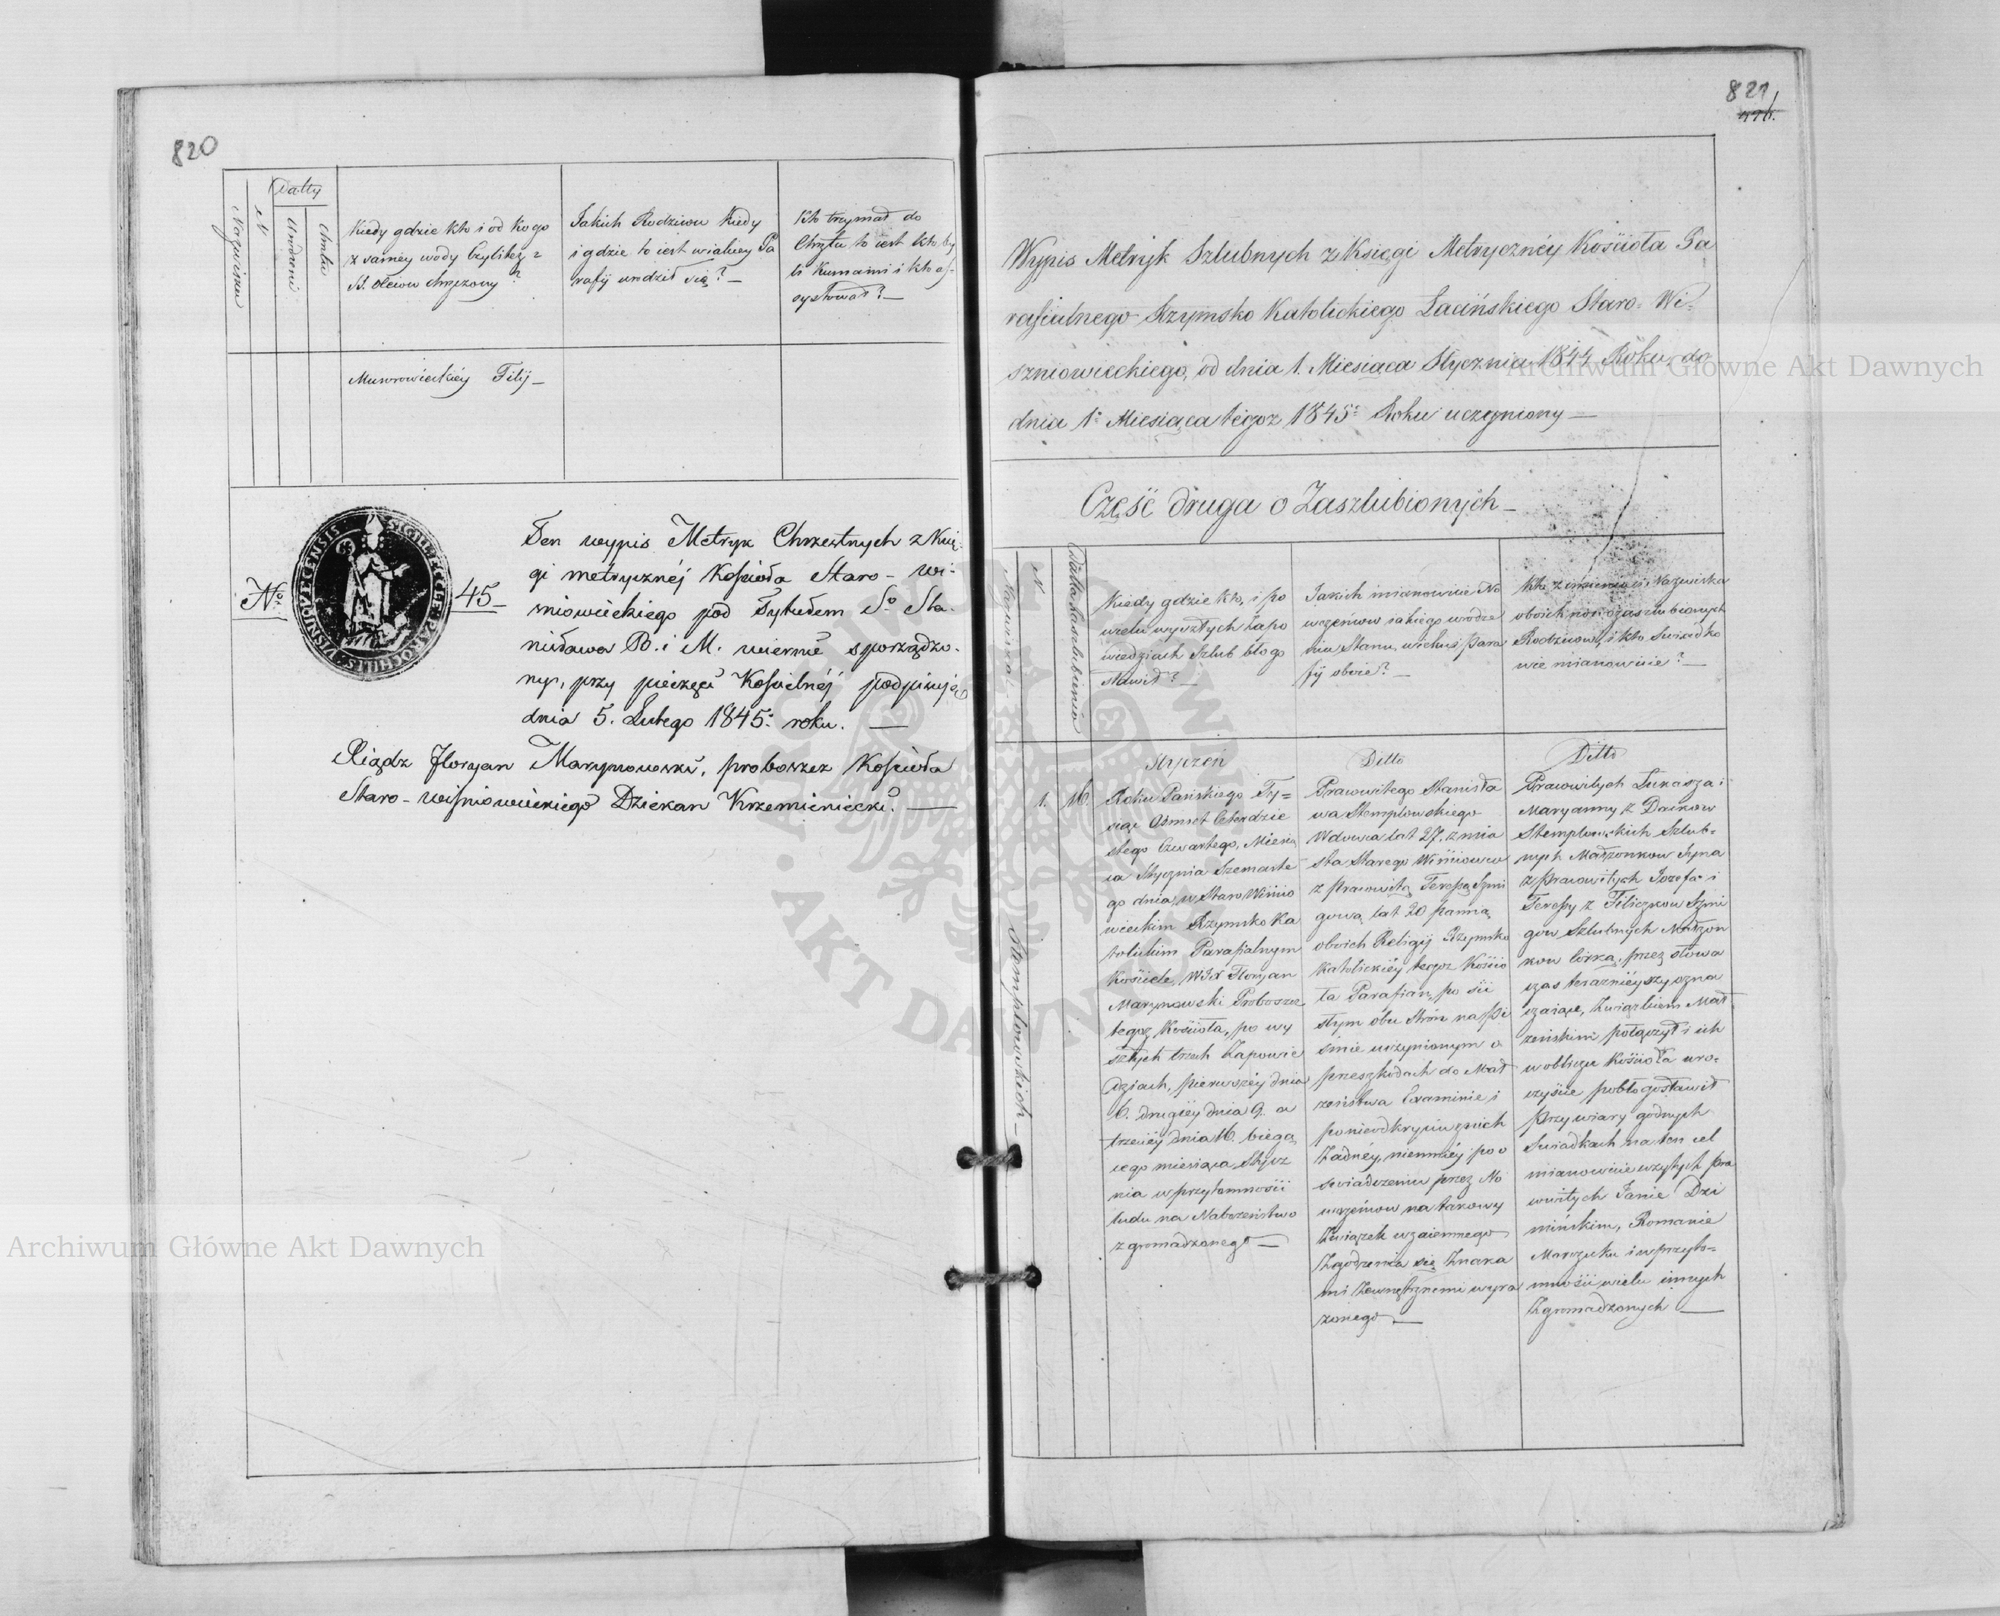 820
Datty
Nazwiska
N
Urodzeni
Chrztu
Kiedy gdzie kto i od kogo
z samey wody Czyliteż z
St. olewu chrzczony?
Jakich Rodziców Kiedy
i gdzie to iest wiakiey Pa
rafij urodził się? —
Kto trzymał do
Chrztu to iest kto by
li Kumami i kto as-
systował? —
Murowieckiéy Filij —
No. 45 —
Ten wypis Metryk Chrzestnych z Księ-
gi métrycznéj Kościoła Staro - wi-
śniowieckiego pod Tytułem So. Sta-
nisława B. i M. wiernie sporządzo-
ny, przy pieczęci Kościelnéj podpisuję
dnia 5. Lutego 1845: roku. —
Xiądz Floryan Marynowski, proboszcz Kościoła
Staro - wiśniowieckiego Dziekan Krzemieniecki. —
821
Wypis Metryk Szlubnych z Ksiegi Metrycznéy Kościoła Pa
rafialnego Rzymsko Katolickiego Łacińskiego Staro - Wi-
szniowieckiego, od dnia 1. Miesiąca Stycznia 1844 Roku do
dnia 1o Miesiąca tegoż 1845o Roku uczyniony —
Część druga o Zaszlubionych —
N.
Nazwiska
Datta zaszlubienia
Kiedy gdzie kto, i po
wielu wyszłych Zapo
wiedziach Szlub błogo
sławił? —
Jakich mianowicie No
wożeńców iakiego urodze
nia Stanu, wieku i Para
fij oboie? —
Kto z imienia i Nazwiska
oboich nowozaszlubionych
Rodziców, i kto Swiadko
wie mianowicie? —
Styczeń
Ditto
Ditto
1.
16.
Stemplowskich —
Roku Pańskiego Ty=
siąc Ośmset Czterdzie
stego Czwartego, Miesią
ca Stycznia Szesnaste
go dnia, w Staro Wiśnio
wieckim Rzymsko Ka
tolickim Parafialnym
Kościele, WJX Floryan
Marynowski Proboszcz
tegoż Kościoła, po wy
szłych trzech Zapowie
dziach, pierwszéy dnia
6. drugiéy dnia 9. a
trzeciéy dnia 16. biegą
cego miesiąca Stycz
nia w przytomności
ludu na Nabożeństwo
zgromadzonego —
Pracowitego Stanisła
wa Stemplowskiego
Wdowca lat 27. z mia
sta Starego Wiśniowca
z Pracowitą Teresą Szmi
gową lat 20 panną
oboich Religij Rzymsko
Katolickiéy tegoż Kościo
ła Parafian, po ści
słym obu Stron na pi
śmie uczynionym o
przeszkodach do Mał
żeństwa Examinie i
ponieodkryciu znich
Żadnéy, niemniéy po o
swiadczeniu przez No
wożeńców na takowy
Związek wzaiemnego
Zgodzenia się Znaka
mi Zewnętrznemi wyra
żonego —
Pracowitych Łukasza i
Maryanny z Dackow
Stemplowskich Szlub-
nych Małżonkow Syna
z Pracowitych Jozefa i
Teresy z Filiczkow Szmi
gow Szlubnych Małżon
kow Córką, przez słowa
czas teraznieyszy ozna
czaiące, Związkiem Mał
żeńskim połączył i ich
w obliczu Kościoła uro-
czyście pobłogosławił
Przy wiary godnych
Swiadkach na ten cel
mianowicie użytych Pra
cowitych Janie Dzi
mińskim, Romanie
Marczuku i w przyto-
mności wielu innych
Zgromadzonych —
Archiwum Główne Akt Dawnych
Archiwum Główne Akt Dawnych